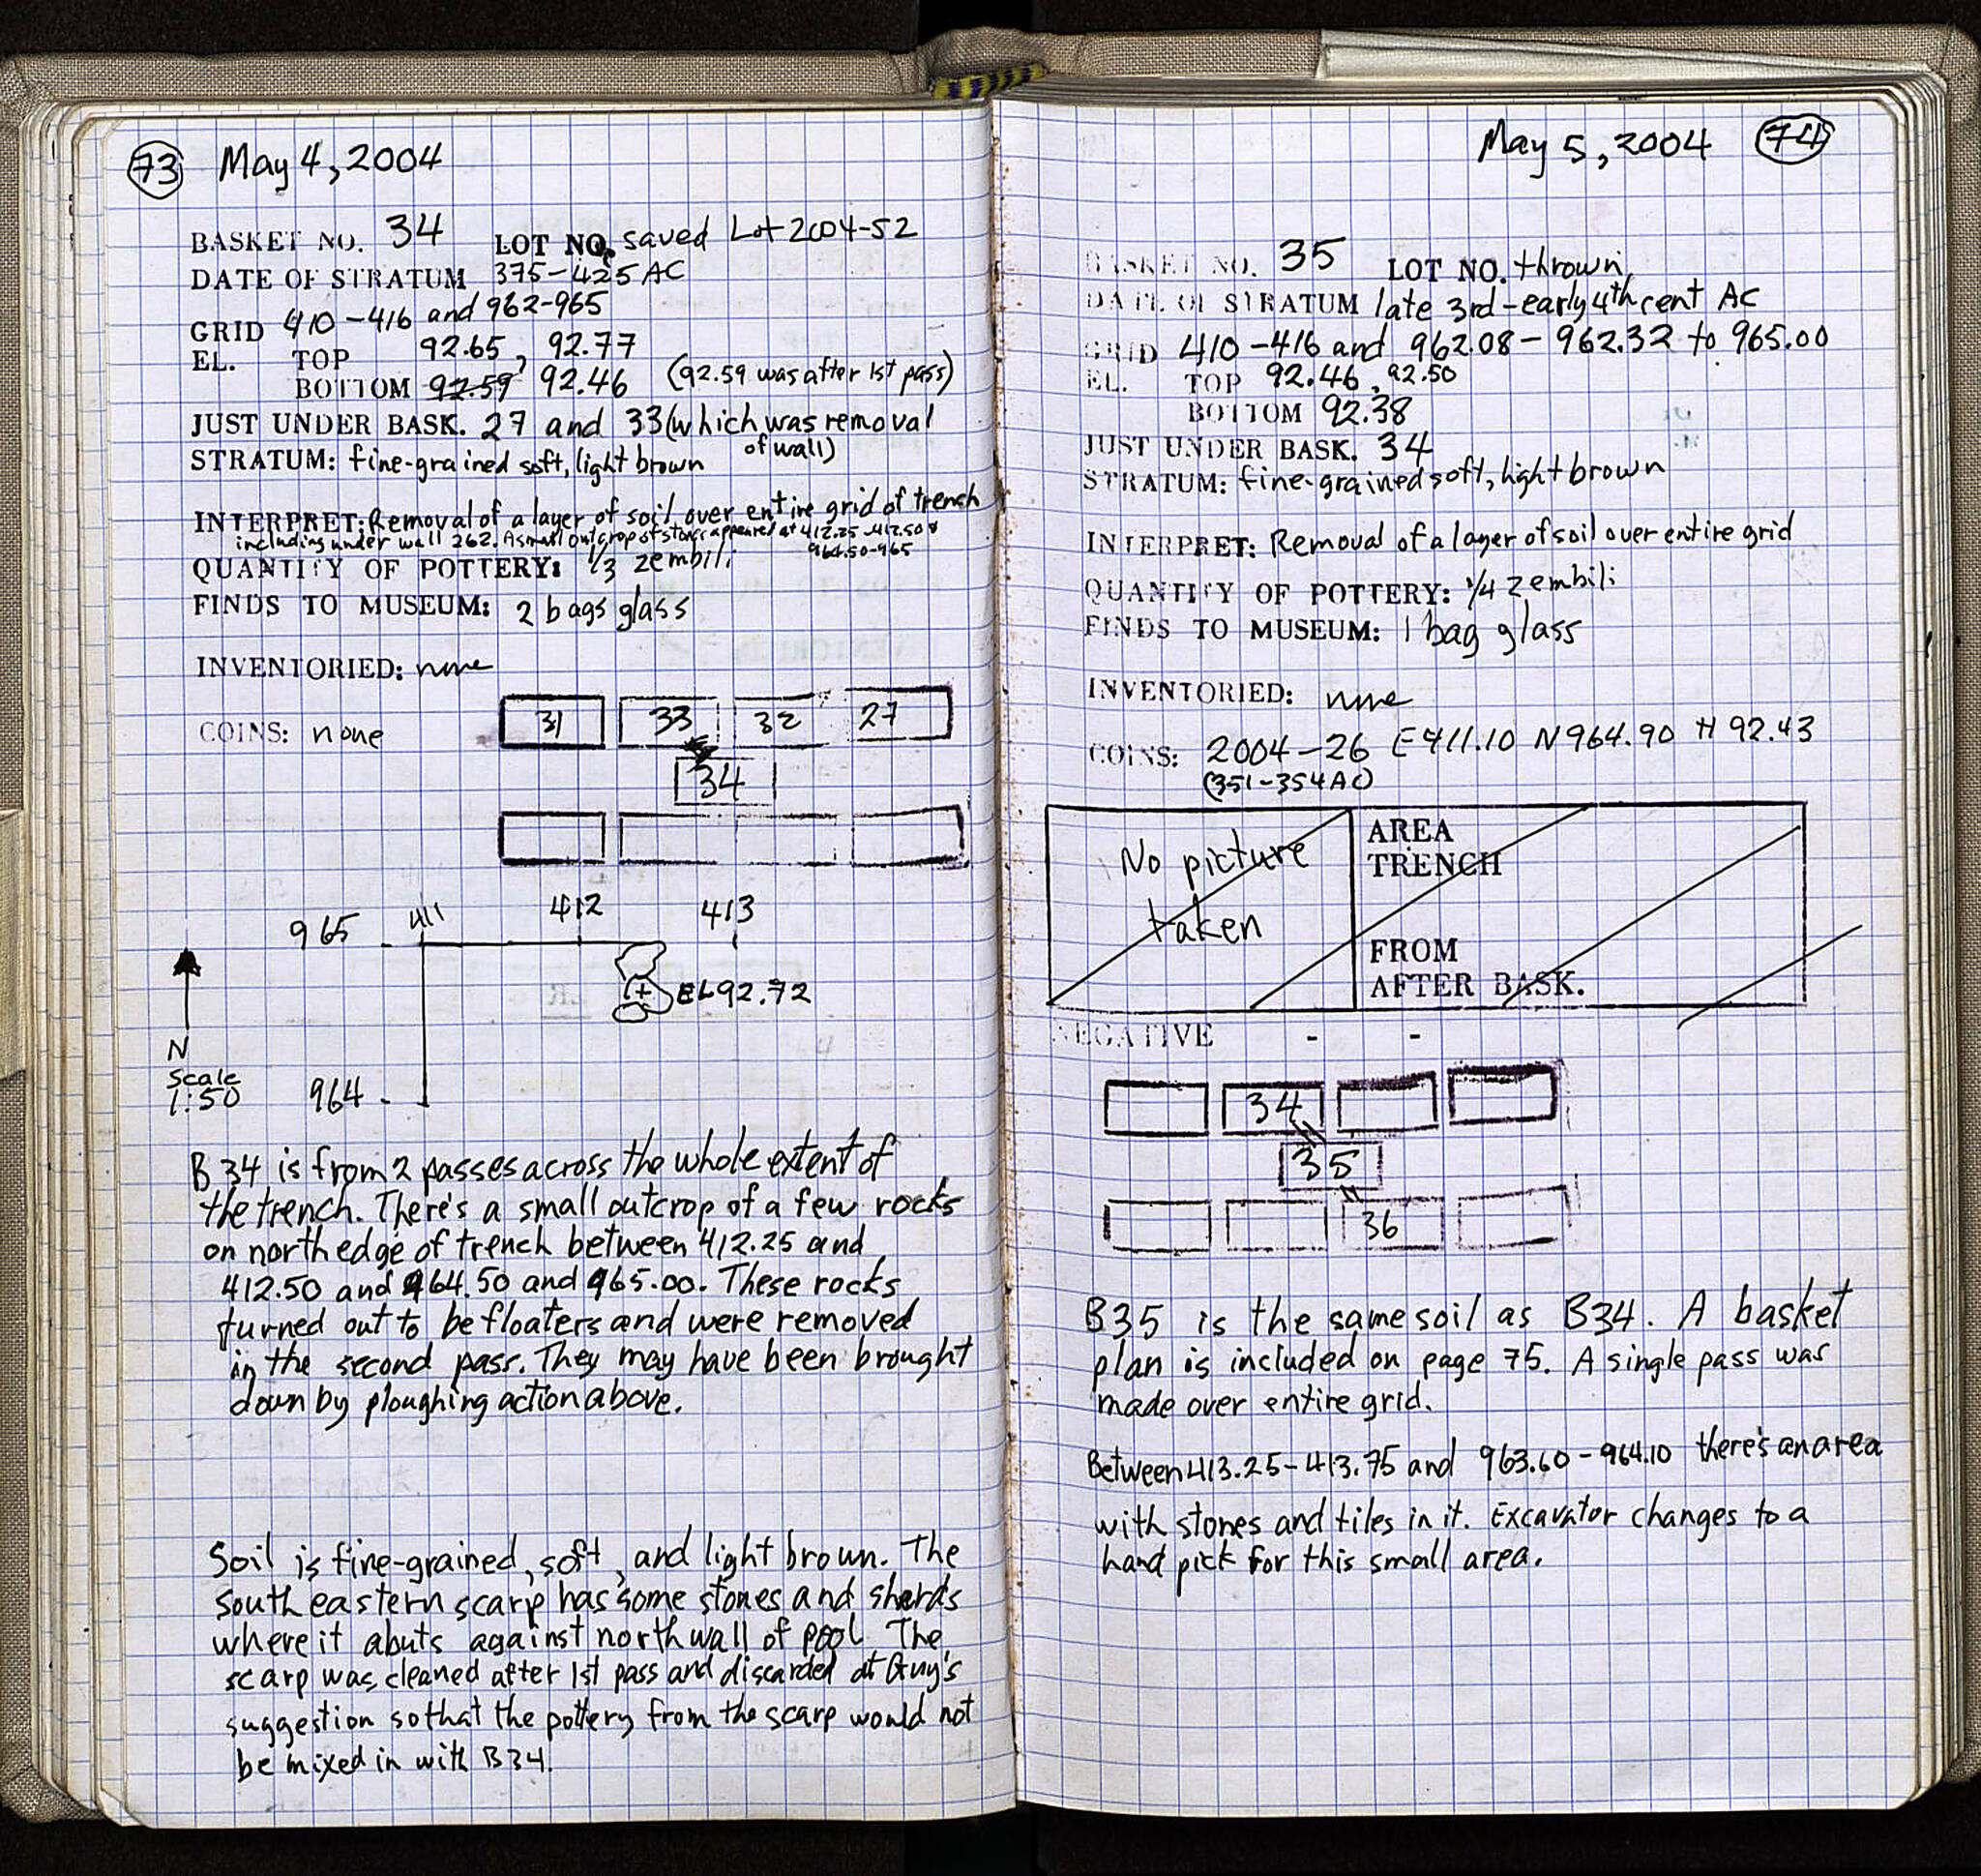 73 May 4, 2004
BASKET NO. 34 LOT NO. saved Lot 2004-52
DATE OF STRATUM 375-425 AC
GRID 410-416 and 962-965
EL. TOP 92.65, 92.77
BOTTOM 92.59 92.46 (92.59 was after 1st pass)
JUST UNDER BASK. 27 and 33 (which was removal
of wall)
STRATUM: fine-grained soft, light brown
INTERPRET: Removal of a layer of soil over entire grid of trench
including under wall 262. A small outcrop of stones appeared at 412.25-412.50 &
964.50-965
QUANTITY OF POTTERY: 1/3 zembili
FINDS TO MUSEUM: 2 bags glass
INVENTORIED: none
COINS: none
31 33 32 27
34
965 411 412 413
EL 92.72
N
Scale
1:50
964
B34 is from 2 passes across the whole extent of
the trench. There's a small outcrop of a few rocks
on north edge of trench between 412.25 and
412.50 and 964.50 and 965.00. These rocks
turned out to be floaters and were removed
in the second pass. They may have been brought
down by ploughing action above.
Soil is fine-grained, soft, and light brown. The
southeastern scarp has some stones and sherds
where it abuts against north wall of pool. The
scarp was cleaned after 1st pass and discarded at Guy's
suggestion so that the pottery from the scarp would not
be mixed in with B34.
May 5, 2004 74
BASKET NO. 35 LOT NO. thrown
DATE OF STRATUM late 3rd-early 4th cent AC
GRID 410-416 and 962.08-962.32 to 965.00
EL. TOP 92.46, 92.50
BOTTOM 92.38
JUST UNDER BASK. 34
STRATUM: fine-grained soft, light brown
INTERPRET: Removal of a layer of soil over entire grid
QUANTITY OF POTTERY: 1/4 zembili
FINDS TO MUSEUM: 1 bag glass
INVENTORIED: none
COINS: 2004-26 E411.10 N964.90 H 92.43
(351-354 AC)
No picture
taken
AREA
TRENCH
FROM
AFTER BASK.
NEGATIVE - -
34
35
36
B35 is the same soil as B34. A basket
plan is included on page 75. A single pass was
made over entire grid.
Between 413.25-413.75 and 963.60-964.10 there's an area
with stones and tiles in it. Excavator changes to a
hand pick for this small area.